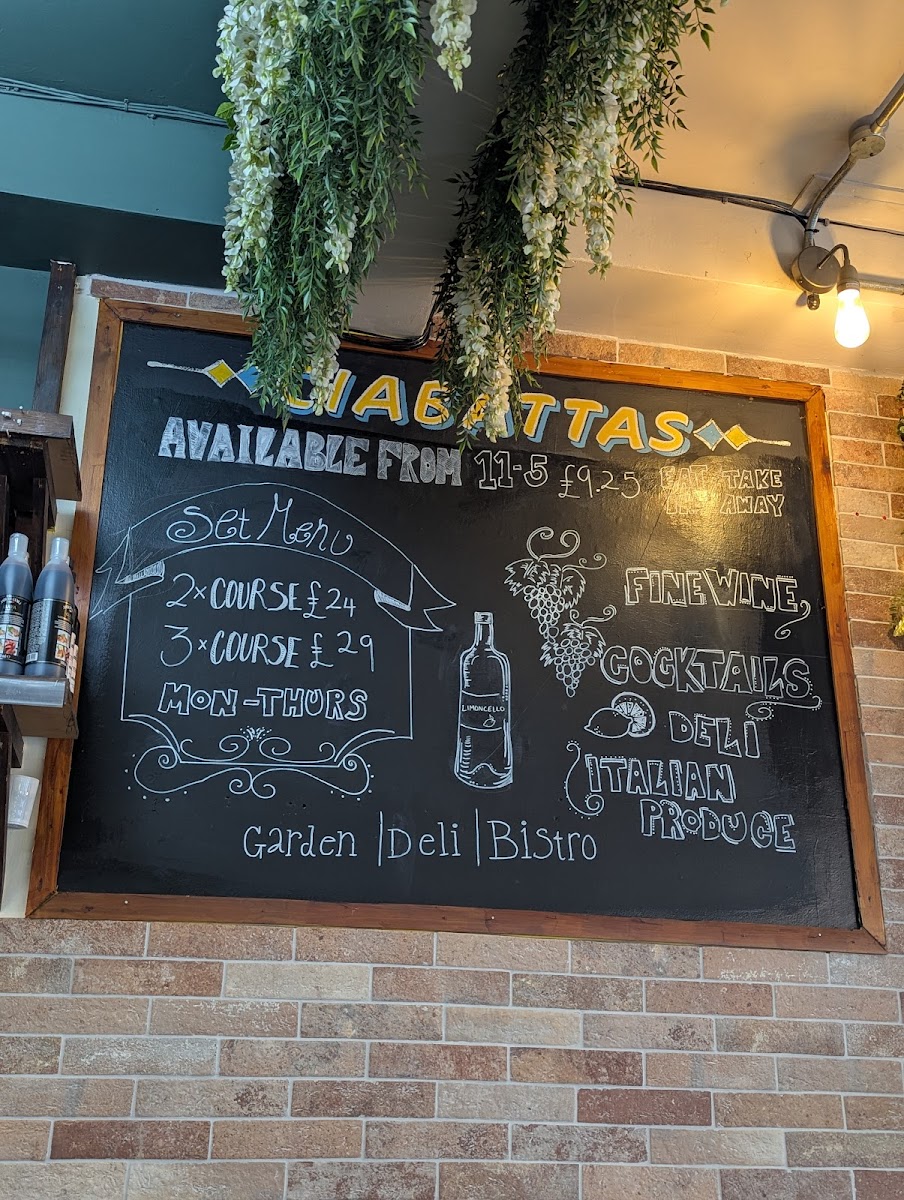 CIABATTAS
AVAILABLE FROM 11-5 £9.25
TAKE
AWAY
Set Menu
2 x COURSE £24
3 x COURSE £29
MON - THURS
LIMONCELLO
FINE WINE
COCKTAILS
DELI
ITALIAN
PRODUCE
Garden | Deli | Bistro